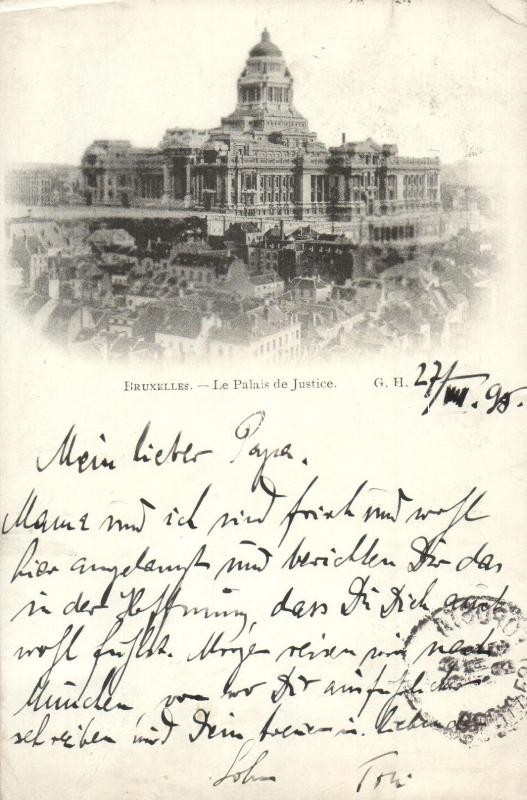 BRUXELLES. — Le Palais de Justice. G. H. 27/VIII. 95.
Mein lieber Papa.
Mama und ich sind frisch und wohl
hier angelangt und berichten Dir das
in der Hoffnung, dass Du Dich auch
wohl fühlst. Morgen reisen wir nach
München von wo Dir ausführlicher
schreiben wird Dein treuer u. liebender
Sohn Toni